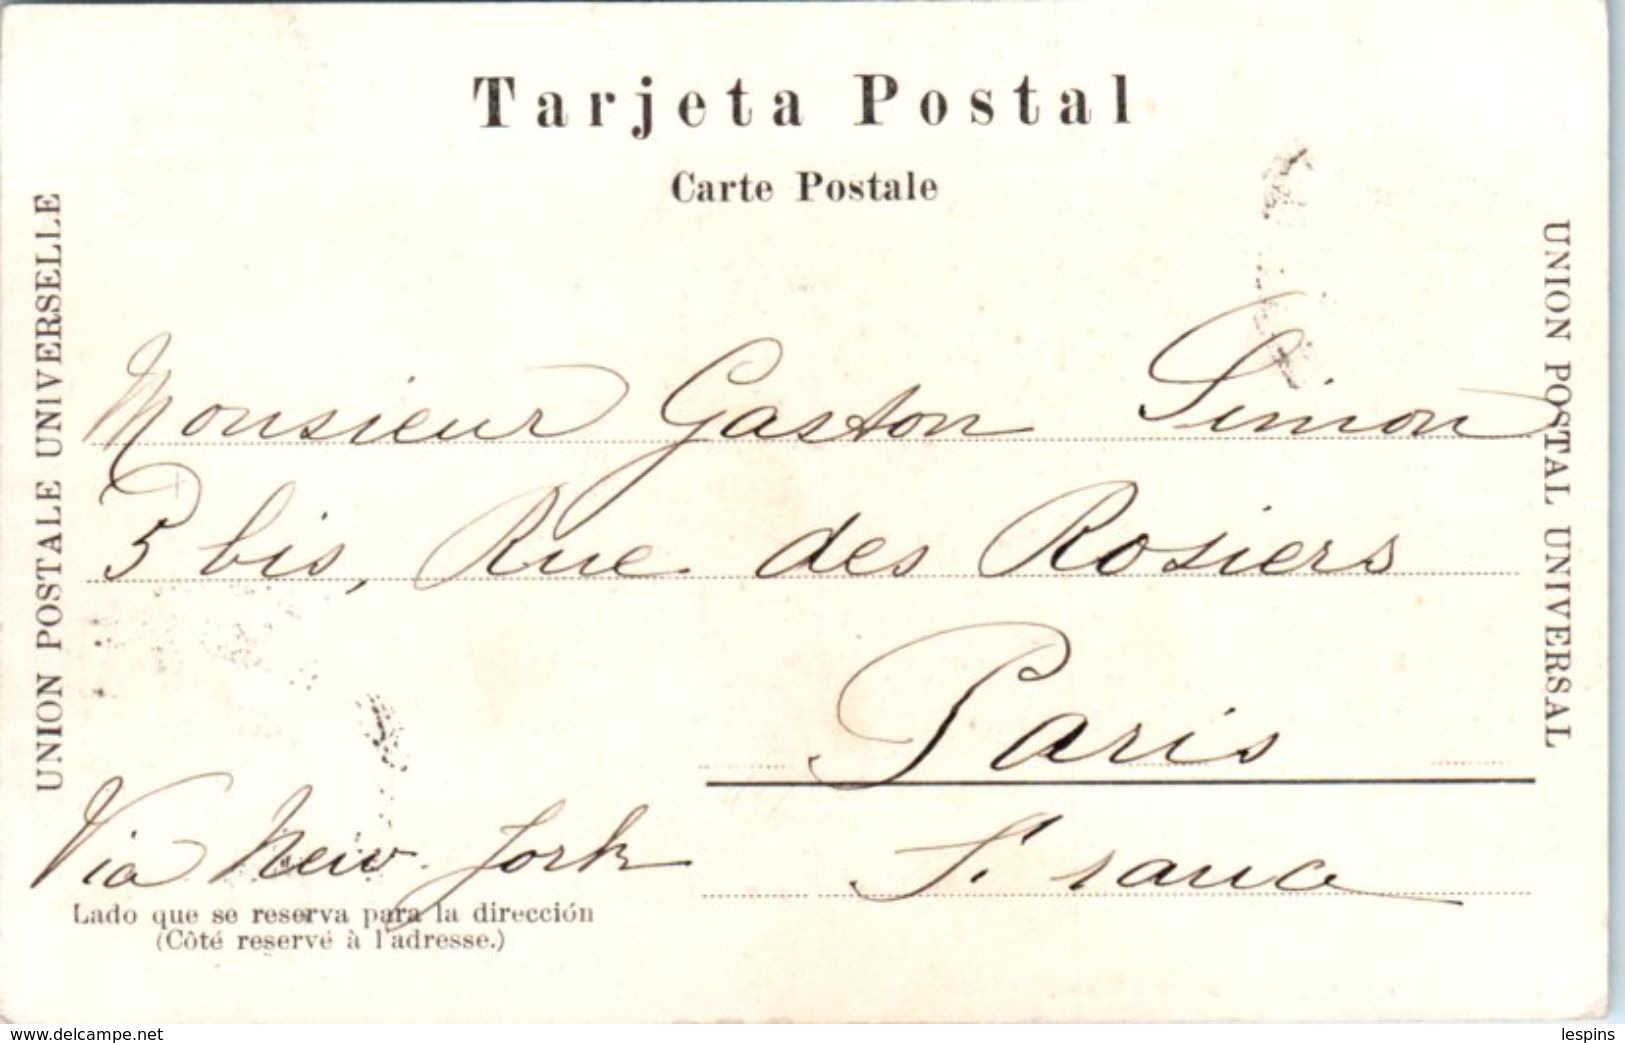 Tarjeta Postal
Carte Postale
UNION POSTALE UNIVERSELLE
UNION POSTAL UNIVERSAL
Monsieur Gaston Simon
5 bis, Rue des Rosiers
Paris
France
Via New York
Lado que se reserva para la dirección
(Côté reservé à l'adresse.)
www.delcampe.net
lespins